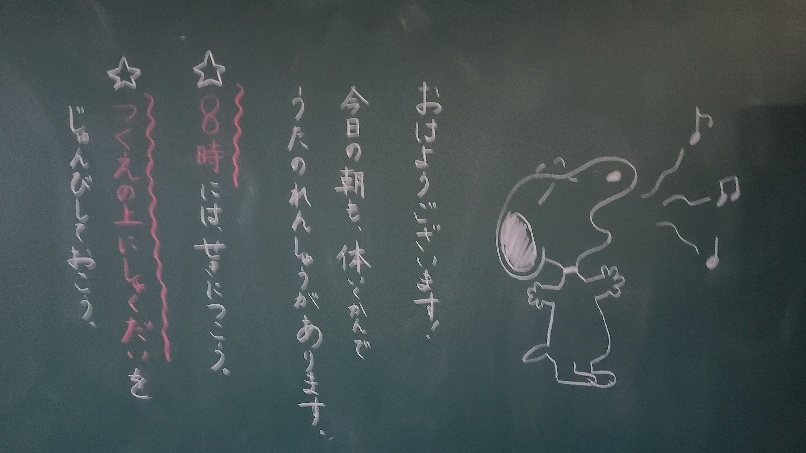 おはようございます!
今日の朝も、体いくかんで
うたのれんしゅうがあります。
☆8時には、せきにつこう。
☆つくえの上にしゅくだいを
じゅんびしておこう。